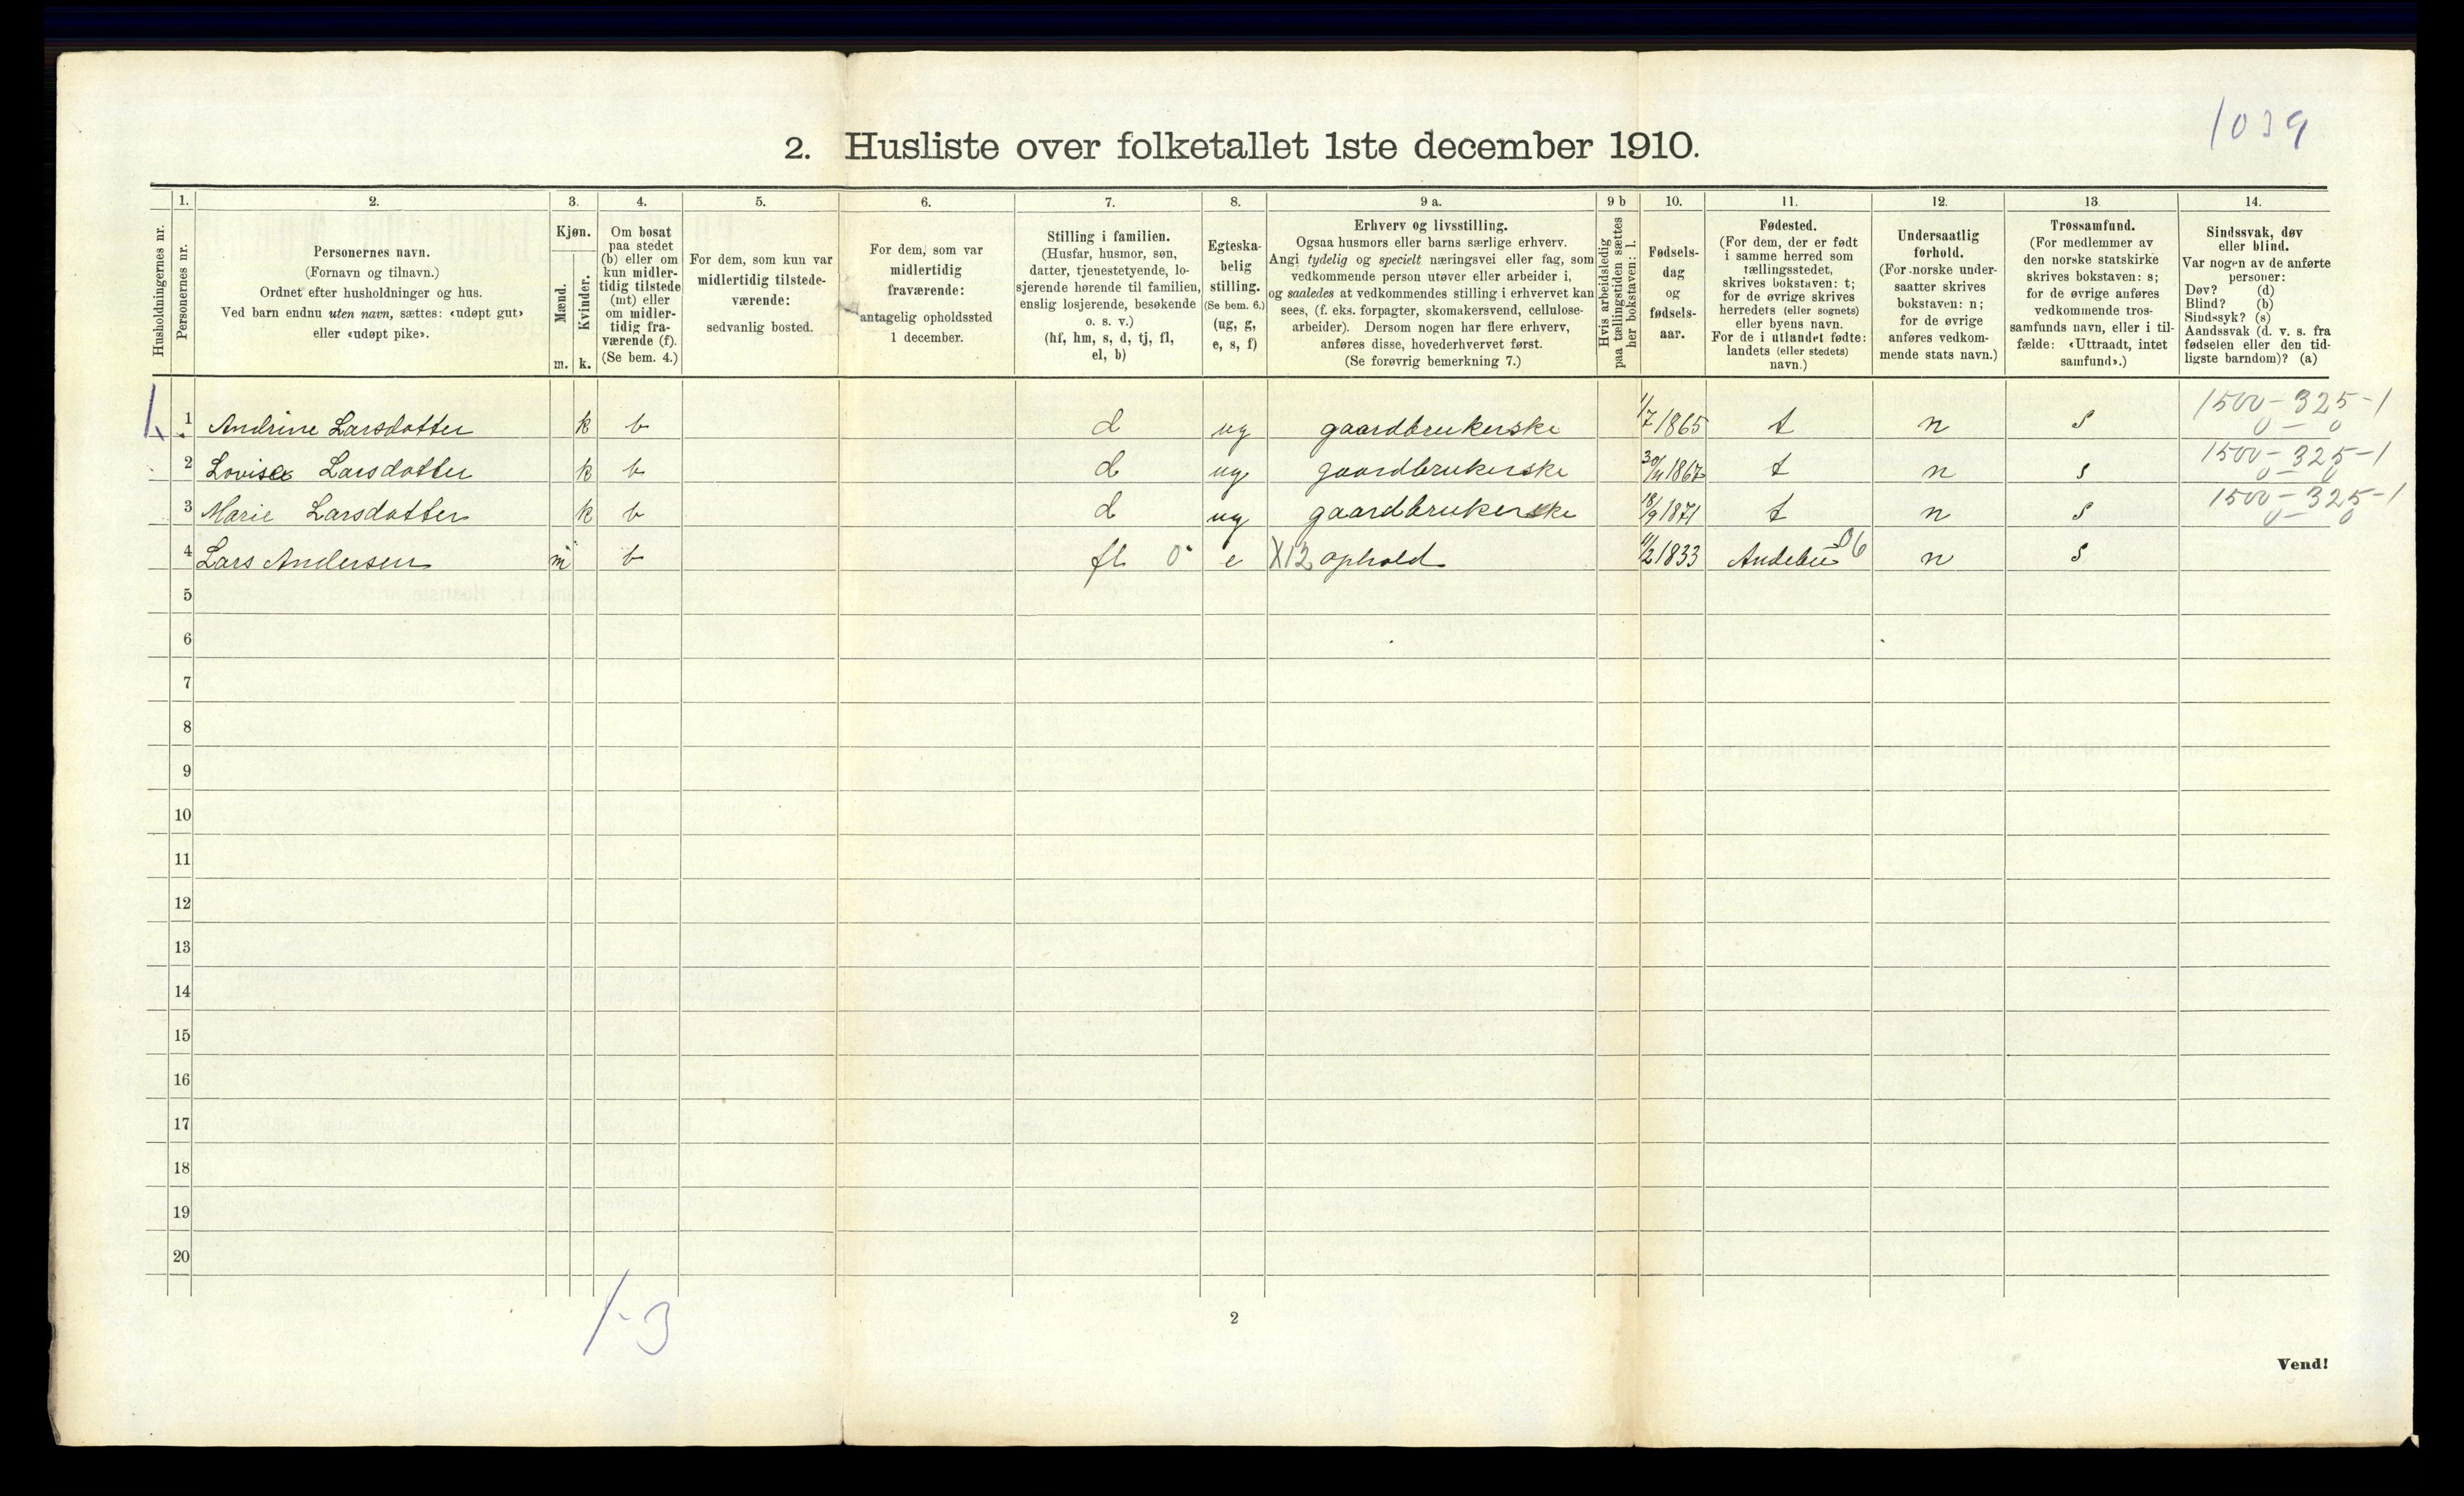 1039
2. Husliste over folketallet 1ste december 1910.
Husholdningernes nr.
1. Personernes nr.
2.
Personernes navn.
(Fornavn og tilnavn.)
Ordnet efter husholdninger og hus.
Ved barn endnu uten navn, sættes: «udøpt gut»
eller «udøpt pike».
3.
Kjøn.
Mænd. m.
Kvinder. k.
4.
Om bosat
paa stedet
(b) eller om
kun midler-
tidig tilstede
(mt) eller
om midler-
tidig fra-
værende (f).
(Se bem. 4.)
5.
For dem, som kun var
midlertidig tilstede-
værende:
sedvanlig bosted.
6.
For dem, som var
midlertidig
fraværende:
antagelig opholdssted
1 december.
7.
Stilling i familien.
(Husfar, husmor, søn,
datter, tjenestetyende, lo-
sjerende hørende til familien,
enslig losjerende, besøkende
o. s. v.)
(hf, hm, s, d, tj, fl,
el, b)
8.
Egteska-
belig
stilling.
(Se bem. 6.)
(ug, g,
e, s, f)
9 a.
Erhverv og livsstilling.
Ogsaa husmors eller barns særlige erhverv.
Angi tydelig og specielt næringsvei eller fag, som
vedkommende person utøver eller arbeider i,
og saaledes at vedkommendes stilling i erhvervet kan
sees, (f. eks. forpagter, skomakersvend, cellulose-
arbeider). Dersom nogen har flere erhverv,
anføres disse, hovederhvervet først.
(Se forøvrig bemerkning 7.)
9 b
Hvis arbeidsledig
paa tællingstiden sættes
her bokstaven: l.
10.
Fødsels-
dag
og
fødsels-
aar.
11.
Fødested.
(For dem, der er født
i samme herred som
tællingsstedet,
skrives bokstaven: t;
for de øvrige skrives
herredets (eller sognets)
eller byens navn.
For de i utlandet fødte:
landets (eller stedets)
navn.)
12.
Undersaatlig
forhold.
(For norske under-
saatter skrives
bokstaven: n;
for de øvrige
anføres vedkom-
mende stats navn.)
13.
Trossamfund.
(For medlemmer av
den norske statskirke
skrives bokstaven: s;
for de øvrige anføres
vedkommende tros-
samfunds navn, eller i til-
fælde: «Uttraadt, intet
samfund».)
14.
Sindssvak, døv
eller blind.
Var nogen av de anførte
personer:
Døv? (d)
Blind? (b)
Sindssyk? (s)
Aandssvak (d. v. s. fra
fødselen eller den tid-
ligste barndom)? (a)
1. 1 Andrine Larsdatter k b d ug gaardbrukerske 1/7 1865 t n s 1500-325-1
0 - 0
2 Lovise Larsdatter k b d ug gaardbrukerske 30/11 1867 t n s 1500-325-1
0 - 0
3 Marie Larsdatter k b d ug gaardbrukerske 18/9 1871 t n s 1500-325-1
0 - 0
4 Lars Andersen m b fl 0 e X12 ophold 11/2 1833 Andebu 06 n s
5
6
7
8
9
10
11
12
13
14
15
16
17
18
19
20
1-3
2
Vend!